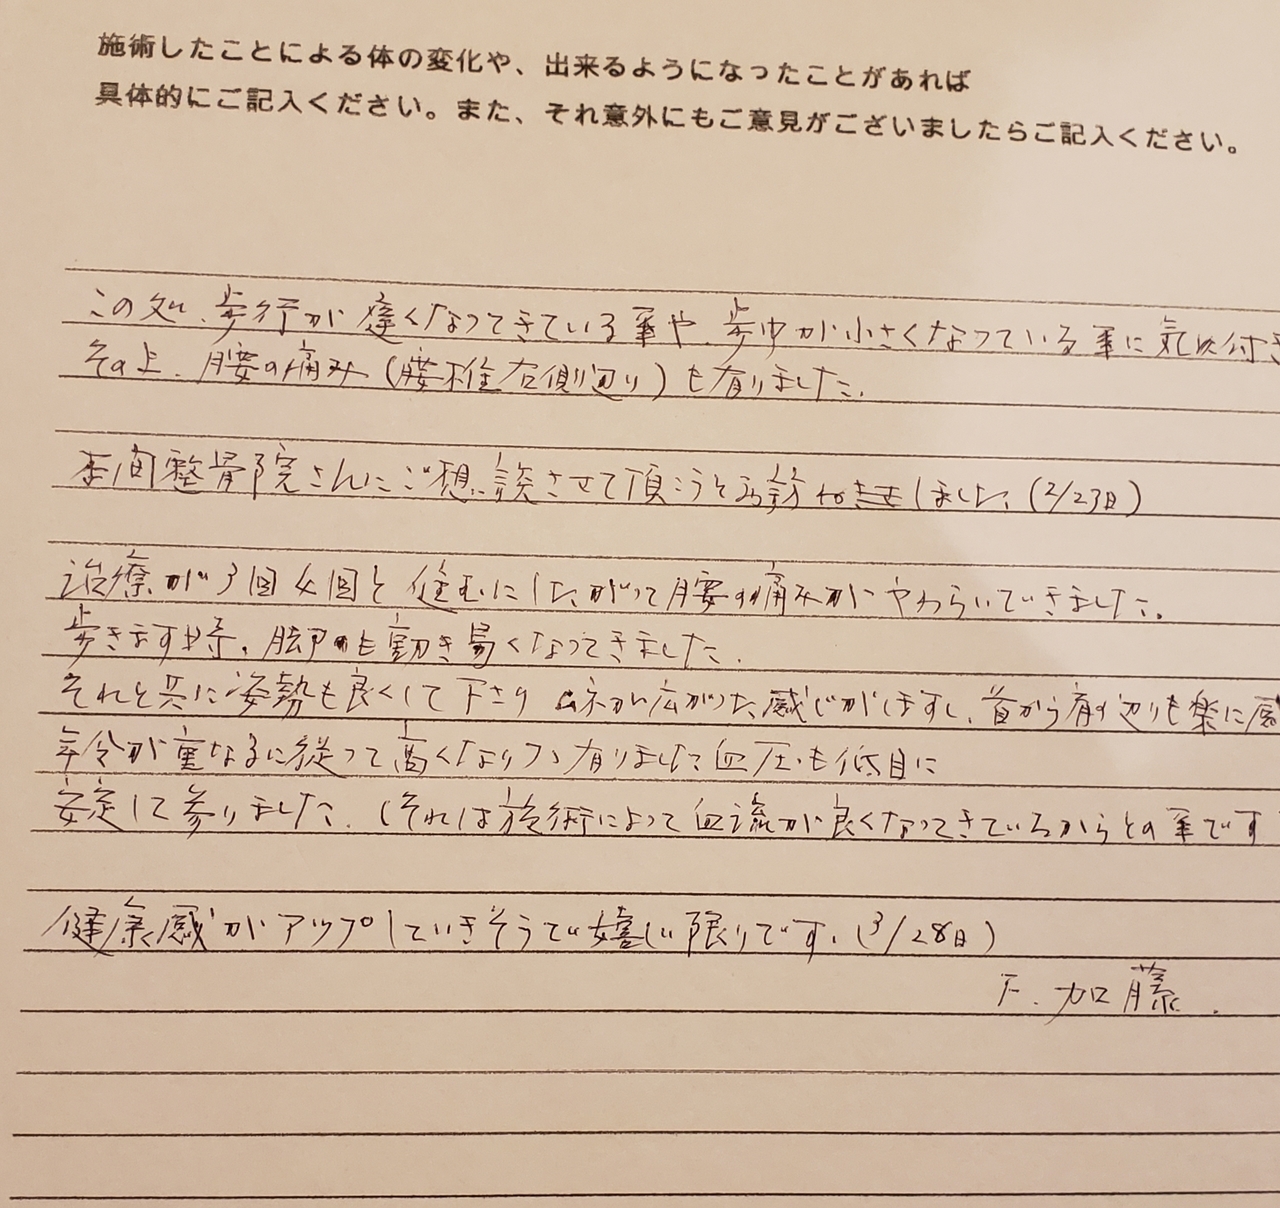 施術したことによる体の変化や、出来るようになったことがあれば
具体的にご記入ください。また、それ意外にもご意見がございましたらご記入ください。
この処、歩行が遅くなってきている事や、歩巾が小さくなっている事に気が付き
その上、腰の痛み(腰椎右側辺り)も有りました。
本間整骨院さんにご想談させて頂こうとお訪ねしました。(2/23日)
治療が3回4回と進むにしたがって腰の痛みがやわらいでいきました。
歩きます時、脚も動き易くなってきました。
それと共に姿勢も良くして下さり胸が広がった感じがしますし、首から肩の辺りも楽に感
年令が重なるに従って高くなりつつ有りました血圧も低目に
安定して参りました。(それは施術によって血流が良くなってきているからとの事です
健康感がアップしていきそうで嬉しい限りです。(3/28日)
F. 加藤.